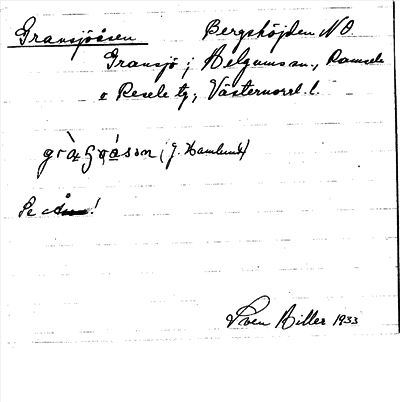 Gransjöåsen Bergshöjden NO.
Gransjö; Helgums sn., Ramsele
o Resele tg, Västernorrl. l.
(J. Hamlund)
Se
Sven Hiller 1933